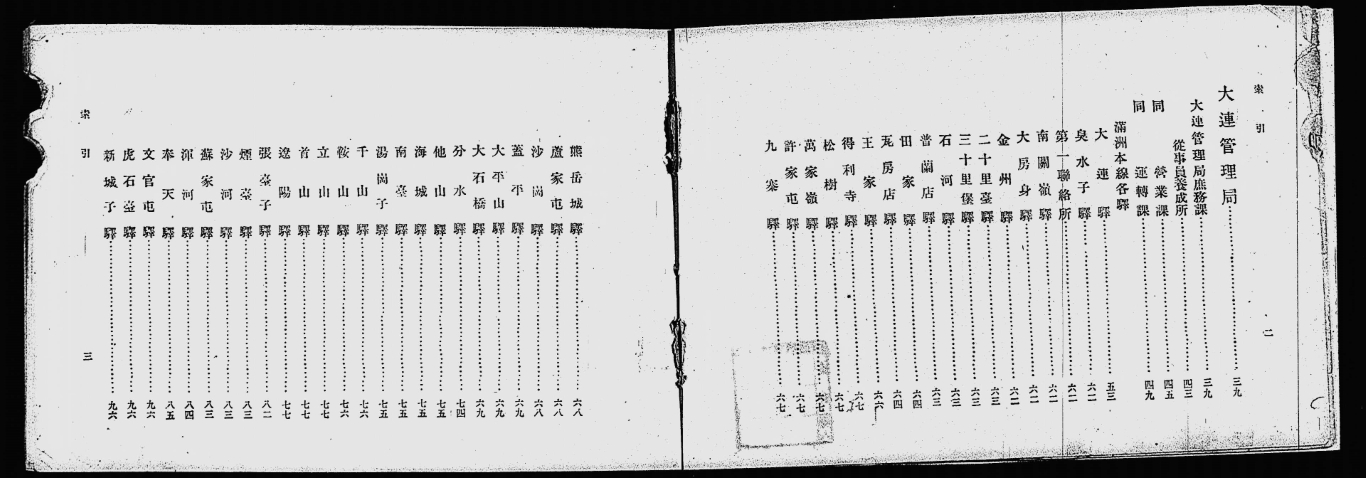 索引
二
大連管理局…………三九
大連管理局庶務課…………三九
從事員養成所…………四三
同 營業課…………四五
同 運轉課…………四九
滿洲本線各驛
大連驛…………五三
臭水子驛…………六一
第一聯絡所…………六二
南關嶺驛…………六二
大房身驛…………六二
金州驛…………六二
二十里臺驛…………六三
三十里堡驛…………六三
石河驛…………六三
普蘭店驛…………六三
田家驛…………六四
瓦房店驛…………六四
王家驛…………六六
得利寺驛…………六七
松樹驛…………六七
萬家嶺驛…………六七
許家屯驛…………六七
九寨驛…………六七
熊岳城驛…………六八
蘆家屯驛…………六八
沙崗驛…………六八
蓋平驛…………六九
大平山驛…………六九
大石橋驛…………六九
分水驛…………七四
他山驛…………七五
海城驛…………七五
南臺驛…………七五
湯崗子驛…………七五
千山驛…………七六
鞍山驛…………七六
立山驛…………七七
首山驛…………七七
遼陽驛…………七七
張臺子驛…………八二
煙臺驛…………八三
沙河驛…………八三
蘇家屯驛…………八三
渾河驛…………八四
奉天驛…………八五
文官屯驛…………九六
虎石臺驛…………九六
新城子驛…………九六
索引
三